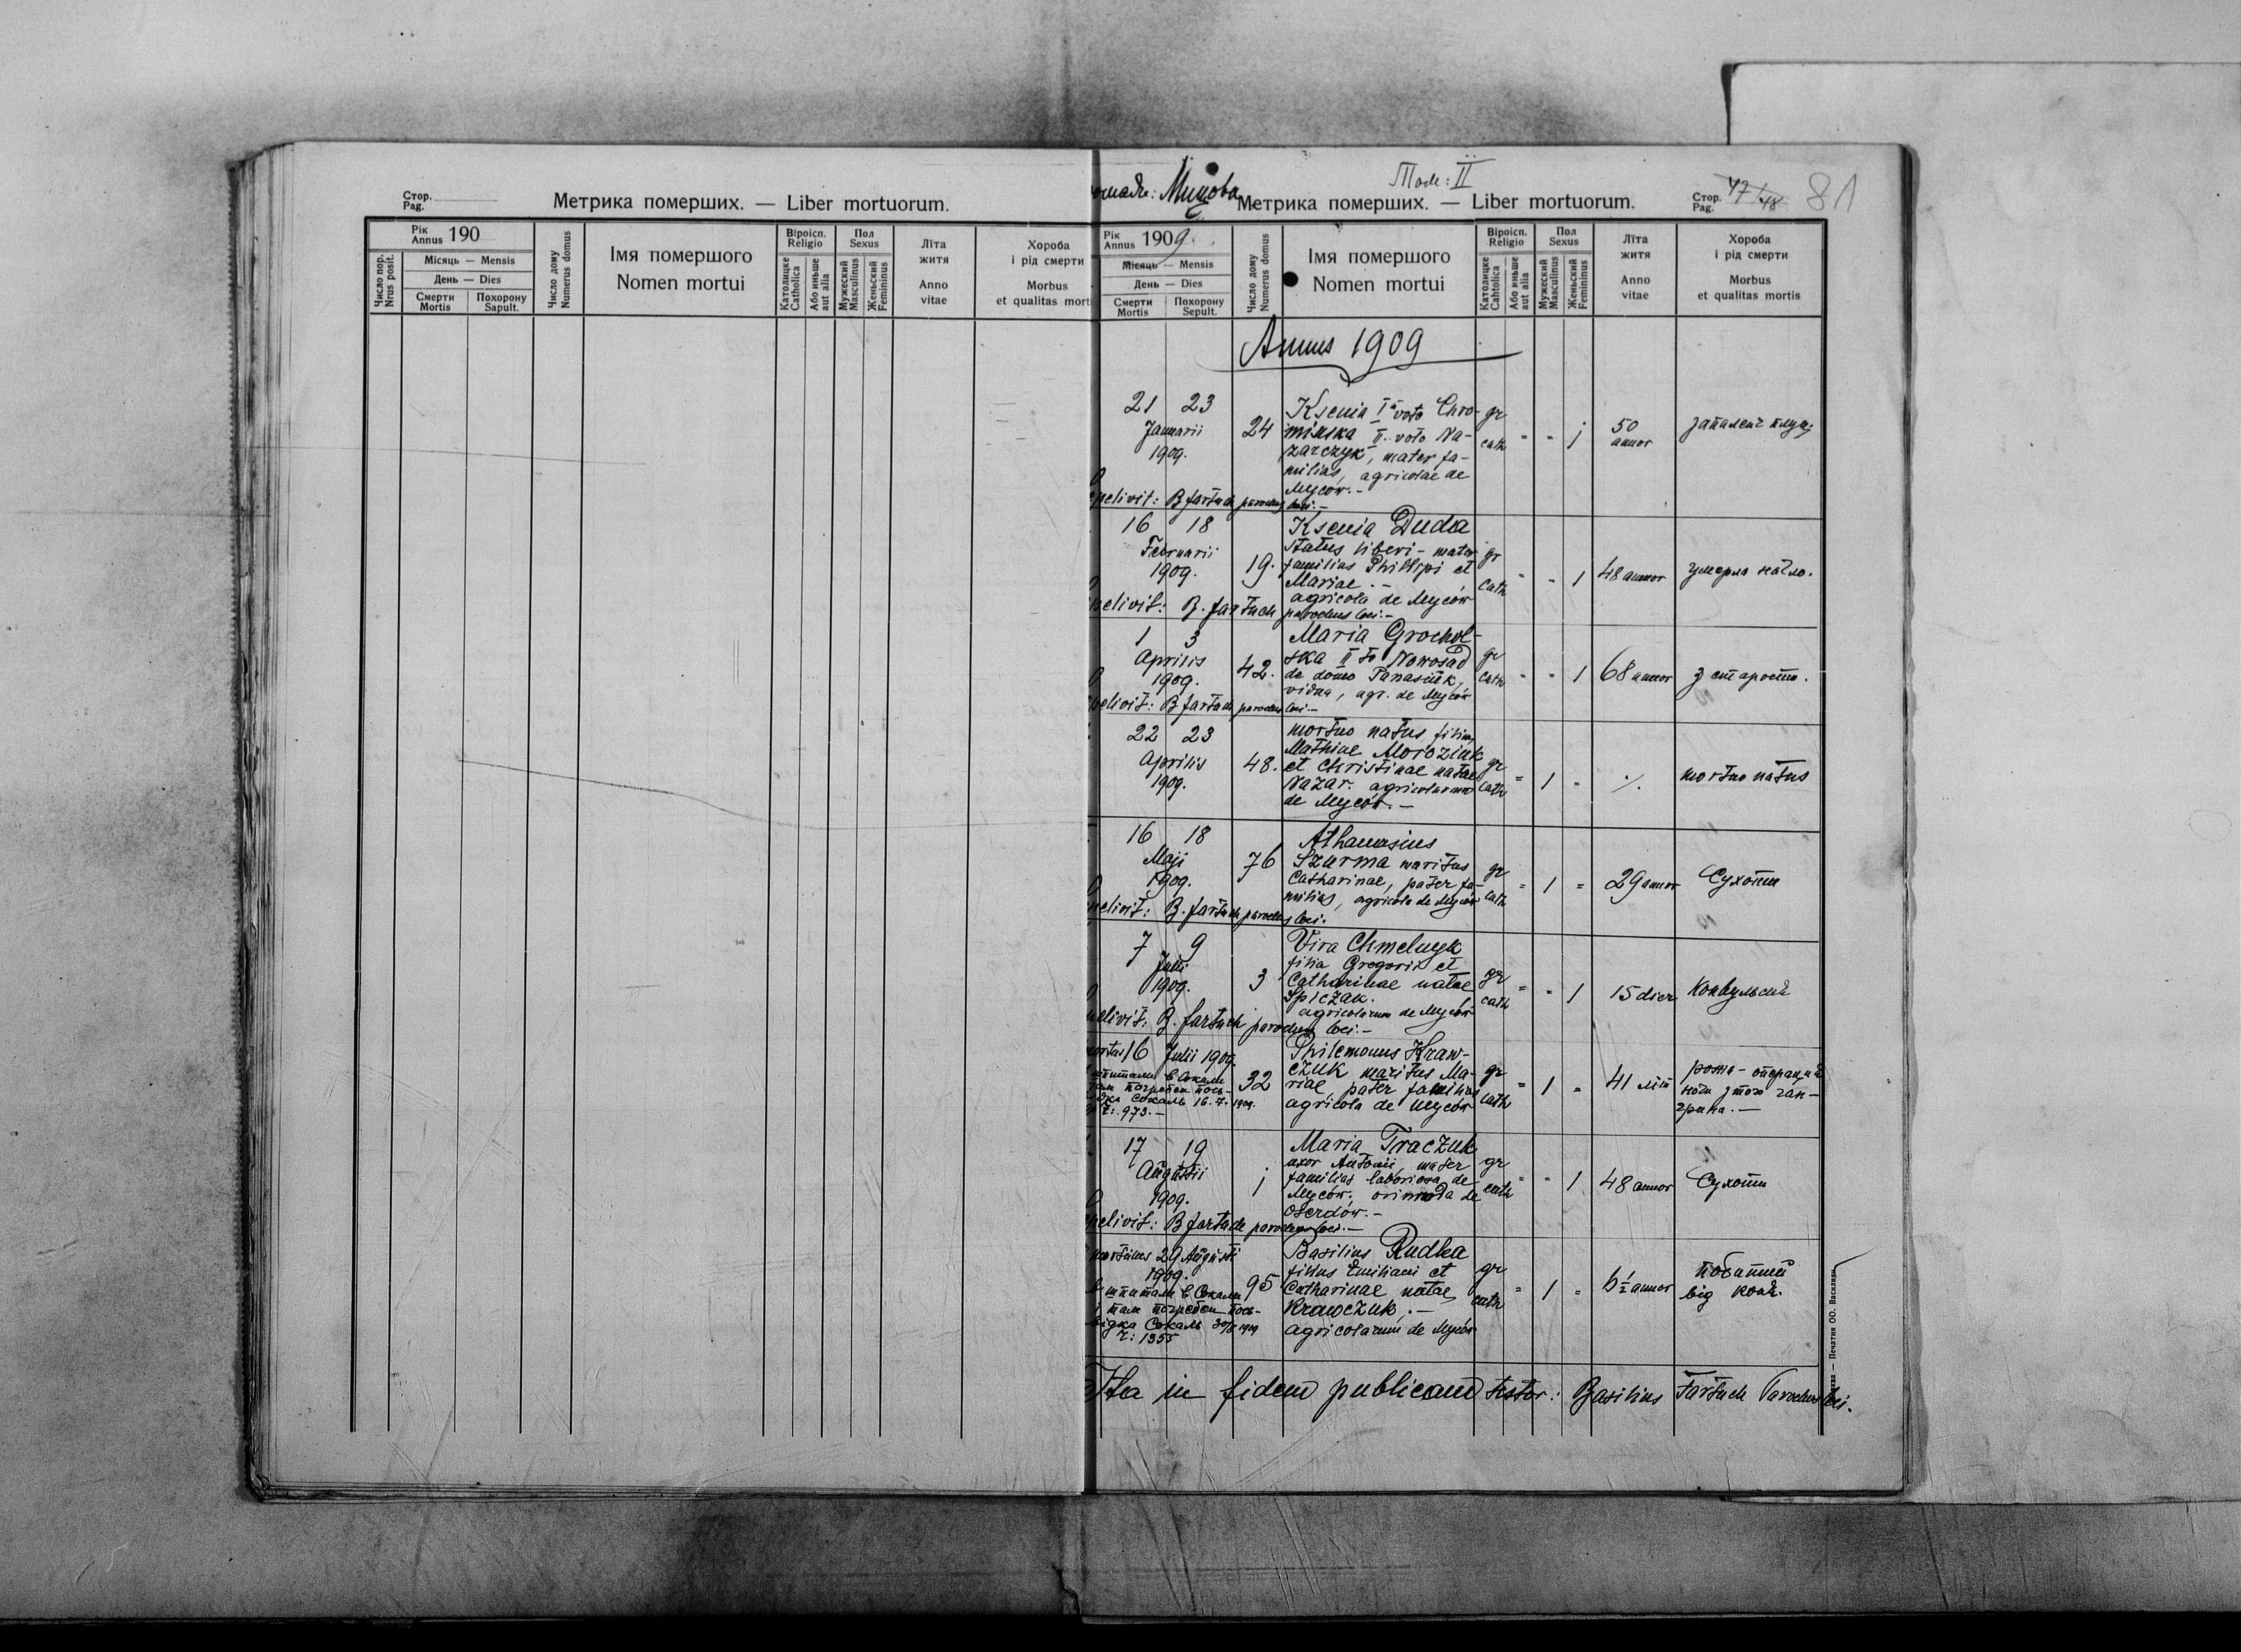 Стор.
Pag.
Метрика померших. — Liber mortuorum.
Рік
Annus 190
Число пор.
Nrus posit.
Місяць — Mensis
День — Dies
Смерти
Mortis
Похорону
Sapult.
Число дому
Numerus domus
Імя помершого
Nomen mortui
Віроісп.
Religio
Католицке
Catholica
Або иньше
aut alia
Пол
Sexus
Мужеский
Masculinus
Женьский
Femininus
Лїта
житя
Anno
vitae
Хороба
і рід смерти
Morbus
et qualitas mort
Том: II
Метрика померших. — Liber mortuorum.
Стор.
Pag.
47/48
81
Рік
Annus 1909.
Місяць — Mensis
День — Dies
Смерти
Mortis
Похорону
Sepult.
Число дому
Numerus domus
Імя помершого
Nomen mortui
Віроісп.
Religio
Католицке
Cahtolica
Або иньше
aut alia
Пол
Sexus
Мужеский
Masculinus
Женьский
Femininus
Лїта
житя
Anno
vitae
Хороба
і рід смерти
Morbus
et qualitas mortis
Annus 1909
21 23
Januarii
1909.
24
Ksenia Iᵒ voto Chro-
minska II voto Na-
zarczyk, mater fa-
milias, agricolae de
Myców.-
gr
cath
" " j
50
annor
запаленє
pelivit: B fartuch parochus loci.-
16 18
Februarii
1909.
19.
Ksenia Duda
status liberi - mater
familias Philippi et
Mariae.-
agricola de Myców
gr
cath
" " 1
48 annor
умерла нагло.
pelivit: B. fartuch parochus loci.-
1 3
Aprilis
1909.
42.
Maria Grochol-
ska II to Nowosad
de domo Panasiuk,
vidua, agr. de Myców
gr
cath
" " 1
68 annor
з старости.
pelivit: B fartuch parochus loci.-
22 23
Aprilis
1909.
48.
mortuo natus filius
Mathiae Moroziuk
et Christinae natae
Nazar. agricolarum
de Myców.-
gr
cath
" 1 "
./.
mortuo natus
16 18
Maji
1909.
76
Athanasius
Szurma maritus
Catharinae, pater fa-
milias, agricola de Myców
gr
cath
" 1 "
29 annor
Сухоти
pelivit: B. fartuch parochus loci.
7 9
Julii
1909.
3
Vira Chmelnyk
filia Gregorii et
Catharinae natae
Spiczak.
agricolarum de Myców
gr
cath
" " 1
15 dier
Конвульсиї
pelivit: B. fartuch parochus loci.-
16 Julii 1909.
в Сокали
Сокаль 16.7.1909.
ч: 973.-
32
Philemonus Kraw-
czuk maritus Ma-
riae, pater familias
agricola de Myców
gr
cath
" 1 "
41 літ
рожа - операция
ноги з того ган-
грина.-
17 19
Augustii
1909.
j
Maria Traczuk
uxor Antonii, mater
familias laboriosa de
Myców, oriunda de
Oserdów.-
gr
cath
" " 1
48 annor
Сухоти
pelivit: B fartuch parochus loci.-
mortuus 29 Augusti
1909.
в шпитали в Сокали
і там погребен пось-
відка Сокаль 30/8 1909
ч: 1355
95
Basilius Rudka
filius Emiliani et
Catharinae natae
Krawczuk.-
agricolarum de Myców
gr
cath
" 1 "
6½ annor
побитий
від коня.
Ita in fidem publicam testor: Basilius Fartuch Parochus loci.